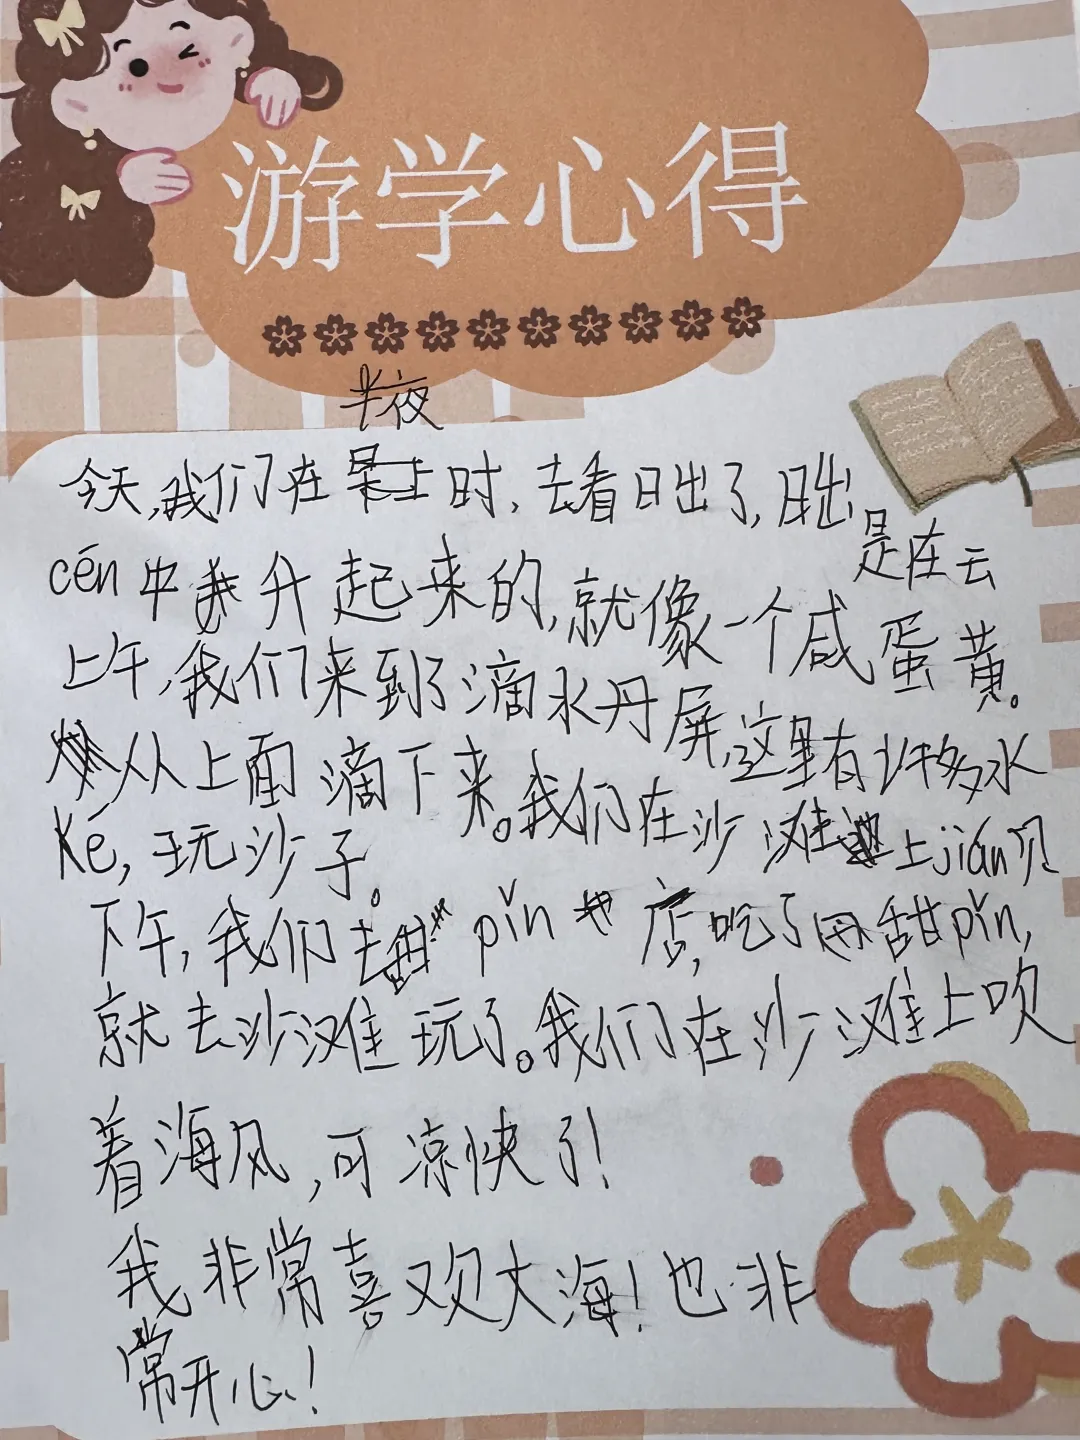 游学心得
半夜
今天,我们在早上时,去看日出了,日出
是在云
cén中升起来的,就像一个咸蛋黄。
上午,我们来到了滴水丹屏,这里有许多水
从上面滴下来。我们在沙滩上jiǎn贝
Ké,玩沙子。
下午,我们去甜pǐn店,吃了甜pǐn,
就去沙滩玩了。我们在沙滩上吹
着海风,可凉快了!
我非常喜欢大海!也非
常开心!